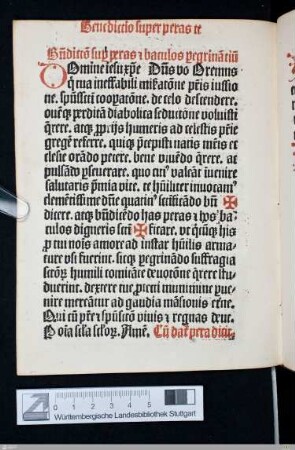 Benedictio super peras ⁊c
Bn̄dictō sup̱ peras ⁊ baculos peregrinātiū
Omine iesu xp̄e Dn̄s vo Oremus
q̇ tua ineffabili miẜatōne pr̄is iussio
ne. sp̄ussctī cooperatōne. de celo descendere.
oueq̄ȝ perditā diabolica seductōne voluisti
q̄rere. atq̄ȝ pp̄rijs humeris ad celestis pr̄ie
gregē referre. quiq̄ȝ p̄cepisti natis mr̄is ec
clesie orādo petere. bene viuēdo q̄rere. at
pulsādo p̱seuerare. quo citi⁹ valeāt īuenire
salutaris p̄mia vite. te hūiliter inuocam⁹
clemētissime dn̄e quatin⁹ scīficādo bn̄ ✠
dicere. atq̄ȝ bn̄dicēdo has peras ⁊ hos ba⸗
culos digneris scti ✠ ficare. vt q̇cūq̄ȝ his
p̱ tui nois amore ad instar hūilis arma
ture vsi fuerint. sicq̄ȝ p̱egrinādo suffragia
scōꝝ humili comitāte deuotōne q̄rere stu
duerint. dextere tue p̱ tecti munimine peue
nire mereātur ad gaudia māsionis etne.
Qui cū pr̄e ⁊ sp̄uscō viuis ⁊ regnas deus.
Per oīa scła scłoꝝ. Amē. Cū daꝉ pera dicit.
Württembergische Landesbibliothek Stuttgart